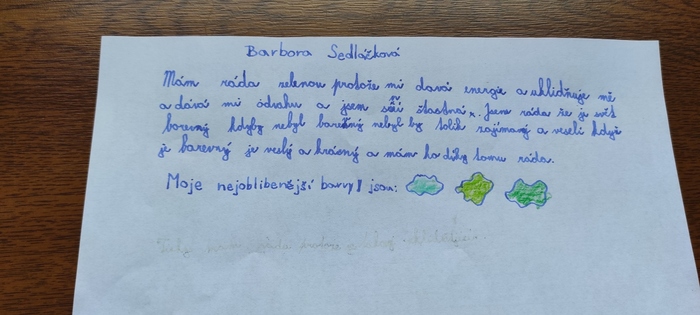 Barbora Sedlářková
Mám ráda zelenou protože mi dává energie a uklidňuje mě
a dává mi odvahu a jsem s ní šťastná. Jsem ráda že je svět
barevný kdyby nebyl barevný nebyl by tolik zajímavý a veselí když
je barevný je veslý a krásný a mám ho díky tomu ráda.
Moje nejoblíbenější barvy jsou: